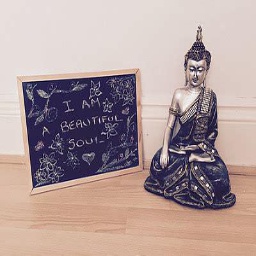 I AM
A BEAUTIFUL
SOUL